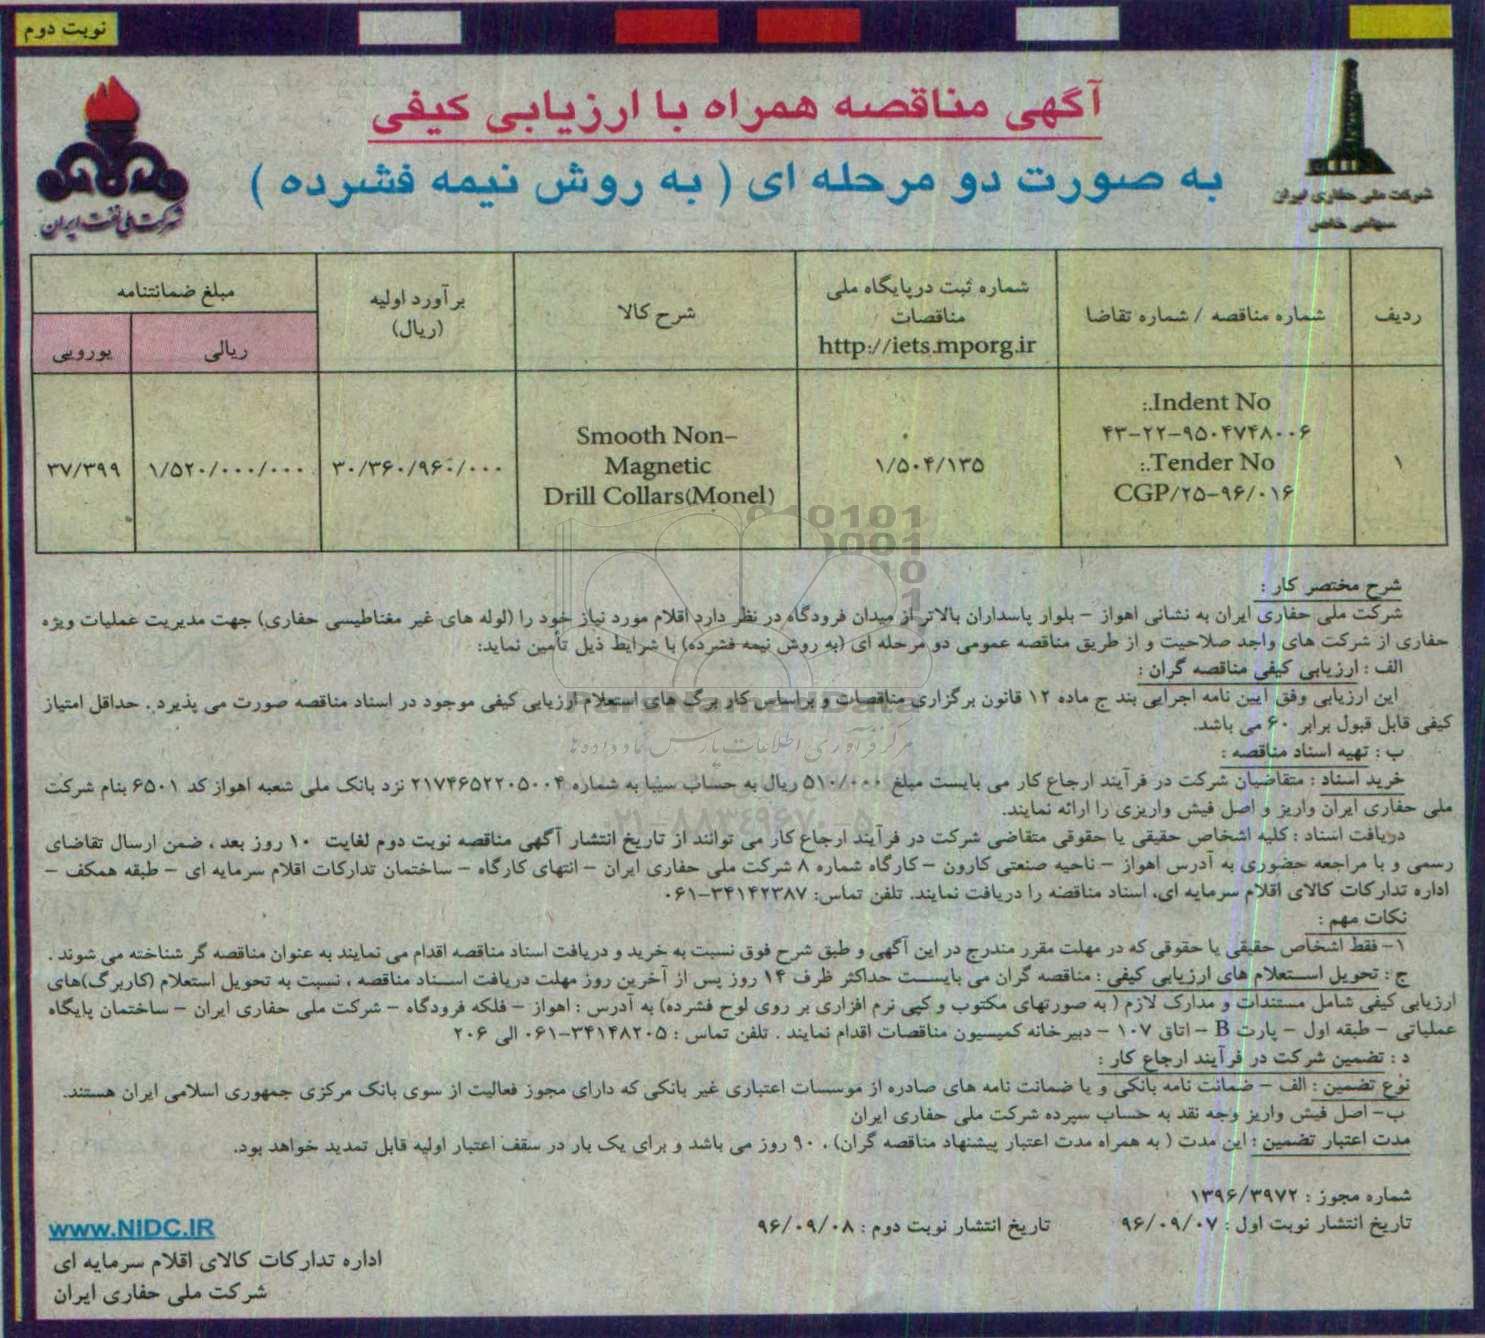 نوبت دوم
آگهی مناقصه همراه با ارزیابی کیفی
به صورت دو مرحله ای ( به روش نیمه فشرده )
شرکت ملی حفاری ایران
سهامی خاص
شرکت ملی نفت ایران
ردیف
شماره مناقصه / شماره تقاضا
شماره ثبت درپایگاه ملی
مناقصات
http://iets.mporg.ir
شرح کالا
برآورد اولیه
(ریال)
مبلغ ضمانتنامه
ریالی
یورویی
۱
Indent No.:
۴۳-۲۲-۹۵۰۴۷۴۸۰۰۶
Tender No.:
CGP/۲۵-۹۶/۰۱۶
۱/۵۰۴/۱۳۵
Smooth Non-
Magnetic
Drill Collars(Monel)
۳۰/۳۶۰/۹۶۰/۰۰۰
۱/۵۲۰/۰۰۰/۰۰۰
۳۷/۳۹۹
شرح مختصر کار :
شرکت ملی حفاری ایران به نشانی اهواز – بلوار پاسداران بالاتر از میدان فرودگاه در نظر دارد اقلام مورد نیاز خود را (لوله های غیر مغناطیسی حفاری) جهت مدیریت عملیات ویژه
حفاری از شرکت های واجد صلاحیت و از طریق مناقصه عمومی دو مرحله ای (به روش نیمه فشرده) با شرایط ذیل تأمین نماید:
الف : ارزیابی کیفی مناقصه گران :
این ارزیابی وفق آیین نامه اجرایی بند ج ماده ۱۲ قانون برگزاری مناقصات و براساس کار برگ های استعلام ارزیابی کیفی موجود در اسناد مناقصه صورت می پذیرد . حداقل امتیاز
کیفی قابل قبول برابر ۶۰ می باشد.
ب : تهیه اسناد مناقصه :
خرید اسناد : متقاضیان شرکت در فرآیند ارجاع کار می بایست مبلغ ۵۱۰/۰۰۰ ریال به حساب سیبا به شماره ۲۱۷۴۶۵۲۲۰۵۰۰۴ نزد بانک ملی شعبه اهواز کد ۶۵۰۱ بنام شرکت
ملی حفاری ایران واریز و اصل فیش واریزی را ارائه نمایند.
دریافت اسناد : کلیه اشخاص حقیقی یا حقوقی متقاضی شرکت در فرآیند ارجاع کار می توانند از تاریخ انتشار آگهی مناقصه نوبت دوم لغایت ۱۰ روز بعد ، ضمن ارسال تقاضای
رسمی و با مراجعه حضوری به آدرس اهواز – ناحیه صنعتی کارون – کارگاه شماره ۸ شرکت ملی حفاری ایران – انتهای کارگاه – ساختمان تدارکات اقلام سرمایه ای – طبقه همکف –
اداره تدارکات کالای اقلام سرمایه ای، اسناد مناقصه را دریافت نمایند. تلفن تماس: ۳۴۱۴۲۳۸۷-۰۶۱
نکات مهم :
۱- فقط اشخاص حقیقی یا حقوقی که در مهلت مقرر مندرج در این آگهی و طبق شرح فوق نسبت به خرید و دریافت اسناد مناقصه اقدام می نمایند به عنوان مناقصه گر شناخته می شوند .
ج : تحویل استعلام های ارزیابی کیفی : مناقصه گران می بایست حداکثر ظرف ۱۴ روز پس از آخرین روز مهلت دریافت اسناد مناقصه ، نسبت به تحویل استعلام (کاربرگ)های
ارزیابی کیفی شامل مستندات و مدارک لازم ( به صورتهای مکتوب و کپی نرم افزاری بر روی لوح فشرده) به آدرس : اهواز – فلکه فرودگاه – شرکت ملی حفاری ایران – ساختمان پایگاه
عملیاتی – طبقه اول – پارت B – اتاق ۱۰۷ – دبیرخانه کمیسیون مناقصات اقدام نمایند . تلفن تماس : ۳۴۱۴۸۲۰۵-۰۶۱ الی ۲۰۶
د : تضمین شرکت در فرآیند ارجاع کار :
نوع تضمین : الف – ضمانت نامه بانکی و یا ضمانت نامه های صادره از موسسات اعتباری غیر بانکی که دارای مجوز فعالیت از سوی بانک مرکزی جمهوری اسلامی ایران هستند.
ب- اصل فیش واریز وجه نقد به حساب سپرده شرکت ملی حفاری ایران
مدت اعتبار تضمین : این مدت ( به همراه مدت اعتبار پیشنهاد مناقصه گران) ، ۹۰ روز می باشد و برای یک بار در سقف اعتبار اولیه قابل تمدید خواهد بود.
شماره مجوز : ۱۳۹۶/۳۹۷۲
تاریخ انتشار نوبت اول : ۹۶/۰۹/۰۷ تاریخ انتشار نوبت دوم : ۹۶/۰۹/۰۸
www.NIDC.IR
اداره تدارکات کالای اقلام سرمایه ای
شرکت ملی حفاری ایران